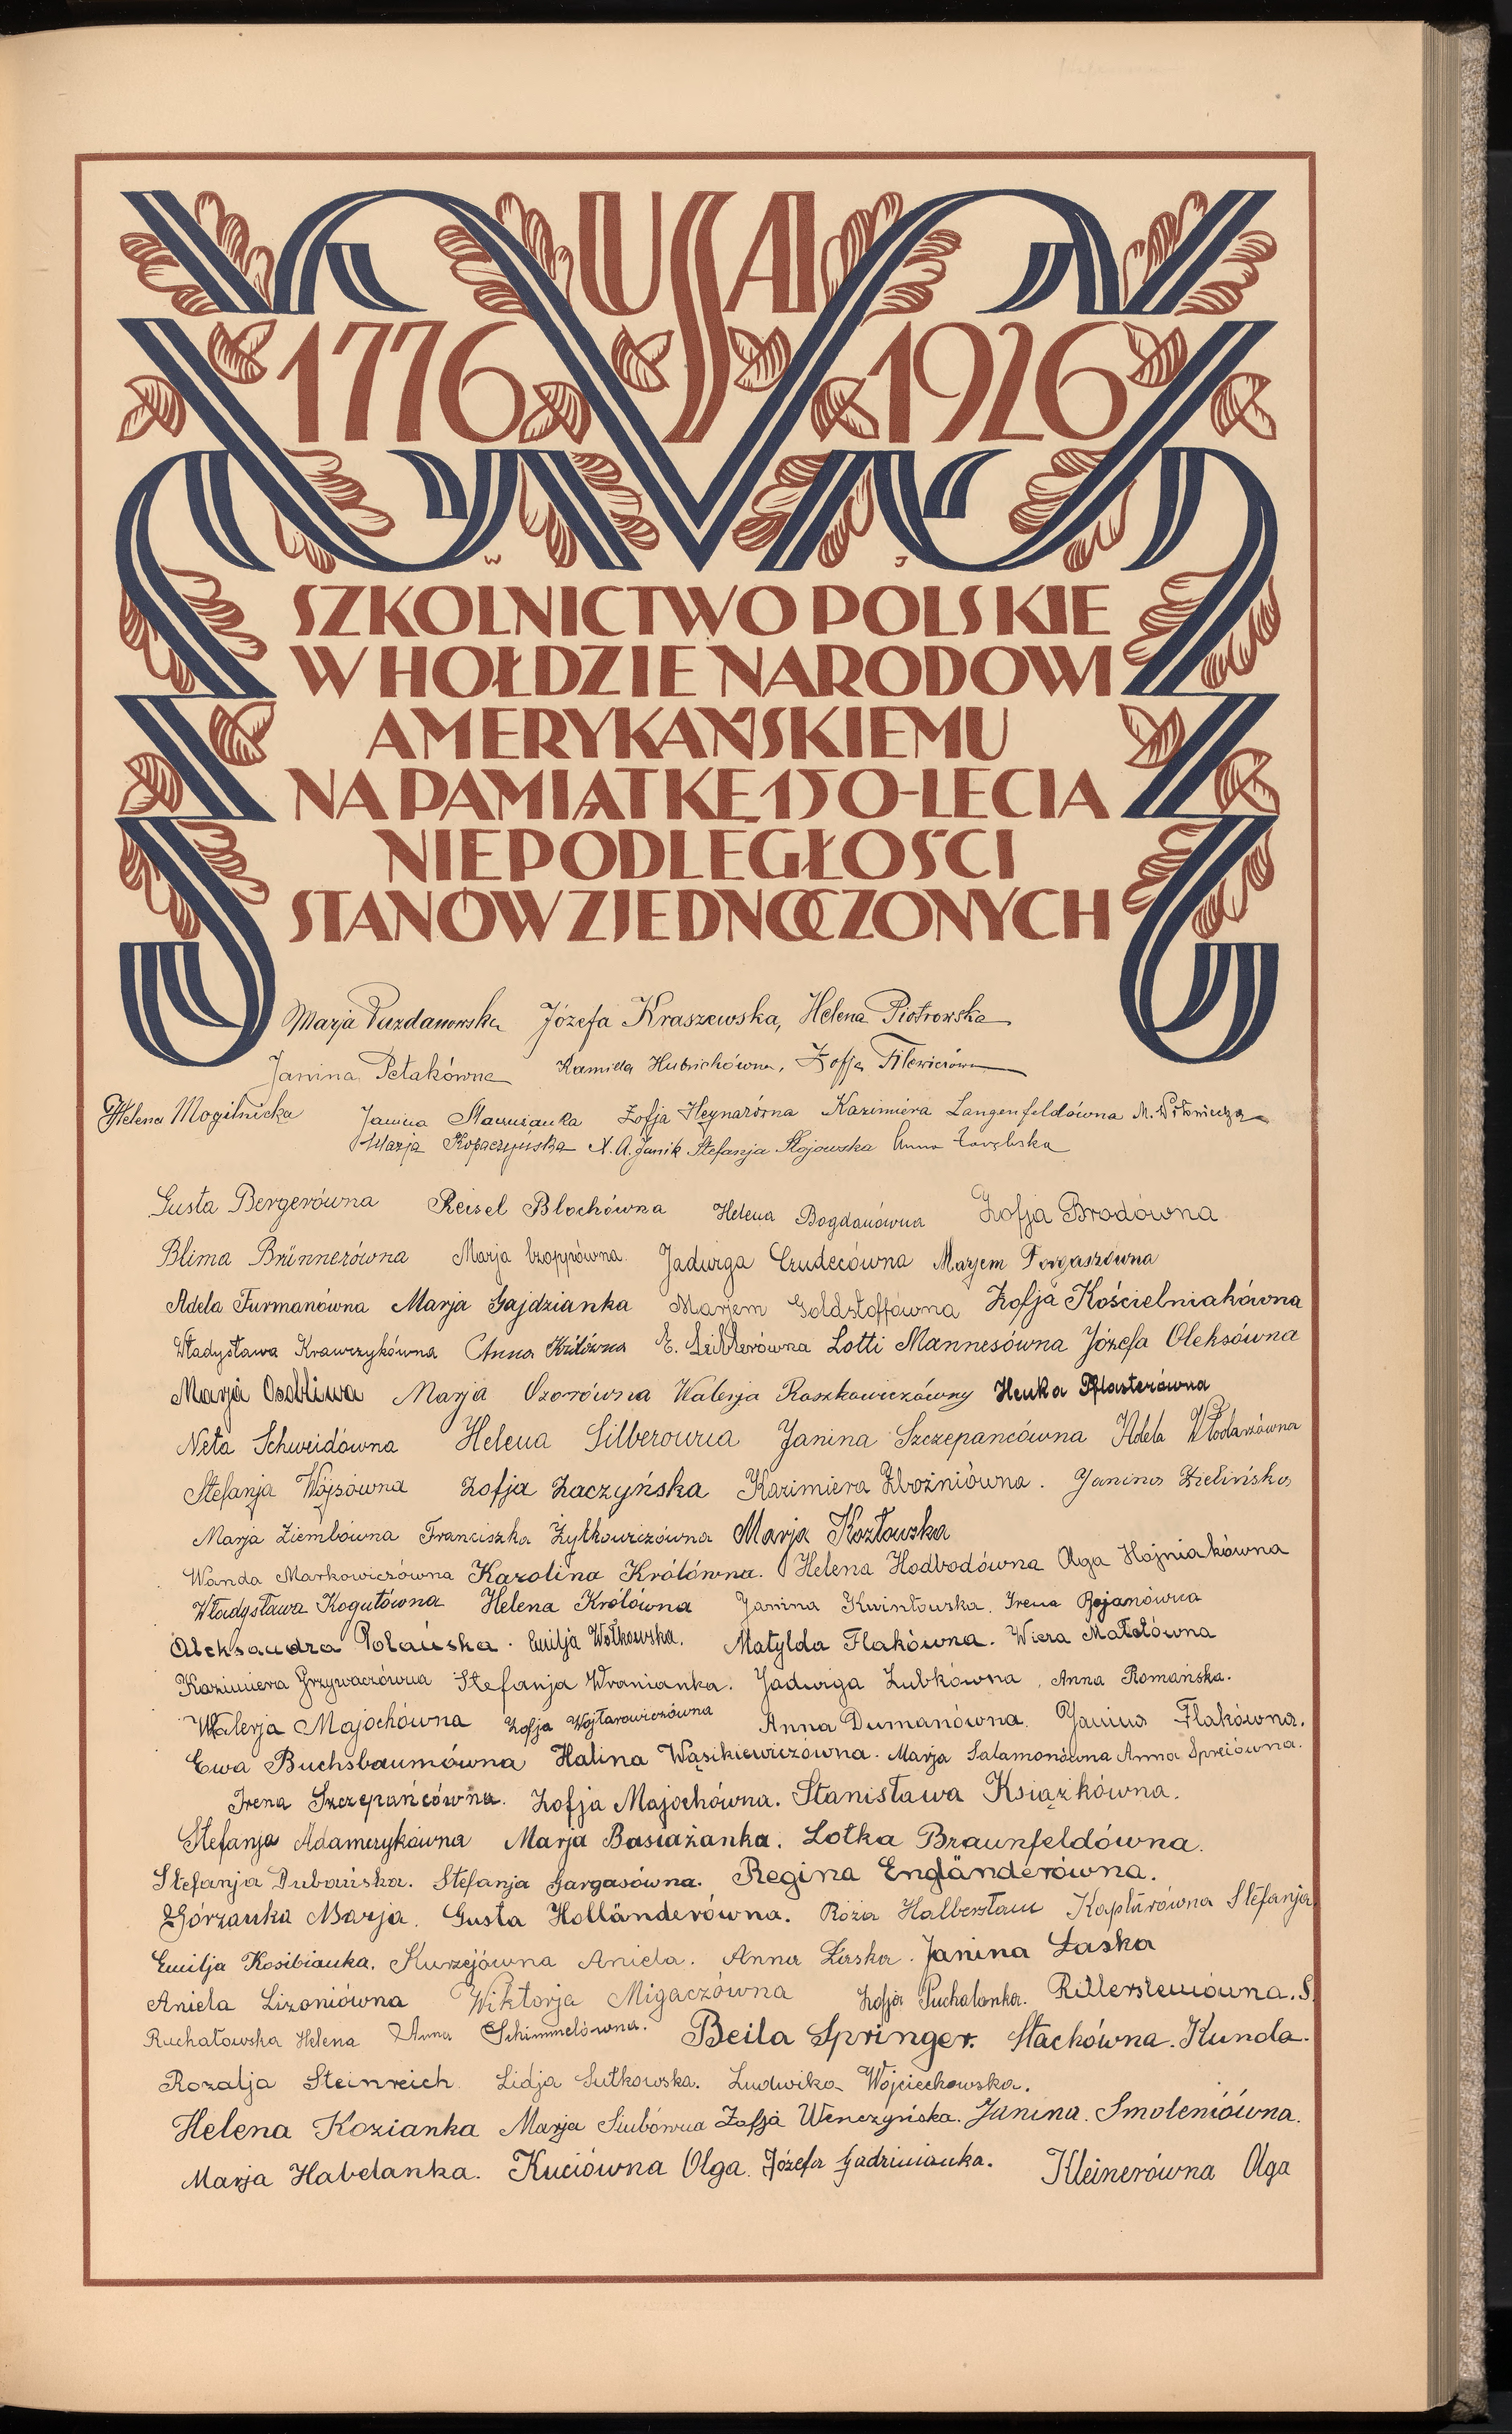 USA
1776 1926
W J
SZKOLNICTWO POLSKIE
W HOŁDZIE NARODOWI
AMERYKAŃSKIEMU
NA PAMIĄTKĘ 150-LECIA
NIEPODLEGŁOŚCI
STANÓW ZJEDNOCZONYCH
Marja Józefa Kraszewska, Helena Piotrowska
Janina Petakówna Kamilla Hubrichówna, Zofja
Helena Mogilnicka Janina Zofja Heynarówna Kazimiera Langenfeldówna M.
Marja Kopaczyńska X. A. Janik Stefanja Stojowska Anna Zarębska
Gusta Bergerówna Reisel Blochówna Helena Bogdanówna Zofja Brodówna
Blima Brünnerówna Marja Czoppówna Jadwiga Czudecówna Marjem Forgaszówna
Adela Furmanówna Marja Gajdzianka Marjem Goldstoffówna Zofja Kościelniakówna
Władysława Krawczykówna Anna Królówna E. Lotti Mannesówna Józefa Oleksówna
Marja Osobliwa Marja Ozorówna Walerja Roszkowiczówny Henka Pflasterówna
Neta Schweidówna Helena Silberówna Janina Szczepancówna Adela Włodarzówna
Stefanja Wójsówna Zofja Zaczyńska Kazimiera Zbożniówna. Janina Zielińska
Marja Ziembówna Franciszka Żytkowiczówna Marja Kozłowska
Wanda Markowiczówna Karolina Królówna. Helena Hodbodówna Olga Hojniakówna
Władysława Kogutówna Helena Królówna Janina Kwintowska. Irena Bojanówna
Aleksandra Polańska. Emilja Wołkowska. Matylda Flakówna. Wiera Małotówna
Kazimiera Grzywaczówna Stefanja Wranianka. Jadwiga Zubkówna, Anna Romańska.
Walerja Majochówna Zofja Wojtarowiczówna Anna Dumanówna. Janina Flakówna.
Ewa Buchsbaumówna Halina Wąsikiewiczówna. Marja Salamonówna Anna Spreiówna.
Irena Szczepańcówna. Zofja Majochówna. Stanisława Książkówna.
Stefanja Adamczykówna Marja Basiażanka. Lotka Braunfeldówna.
Stefanja Dubańska. Stefanja Gargasówna. Regina Engländerówna.
Górzanka Marja. Gusta Holländerówna. Róża Halberstam Kapturówna Stefanja.
Emilja Kosibianka. Kurzejówna Aniela. Anna Laska. Janina Łaska
Aniela Lizoniówna Wiktorja Migaczówna Zofja Puchalanka. Rittersteinówna. S.
Ruchałowska Helena Anna Schimmelówna. Beila Springer. Stachówna. Kunda.
Rozalja Steinreich. Lidja Sutkowska. Ludwika Wojciechowska.
Helena Kozianka Marja Siubówna Zofja Wenczyńska. Janina. Smoleniówna.
Marja Habelanka. Kuciówna Olga. Józefa Gadzinianka. Kleinerówna Olga